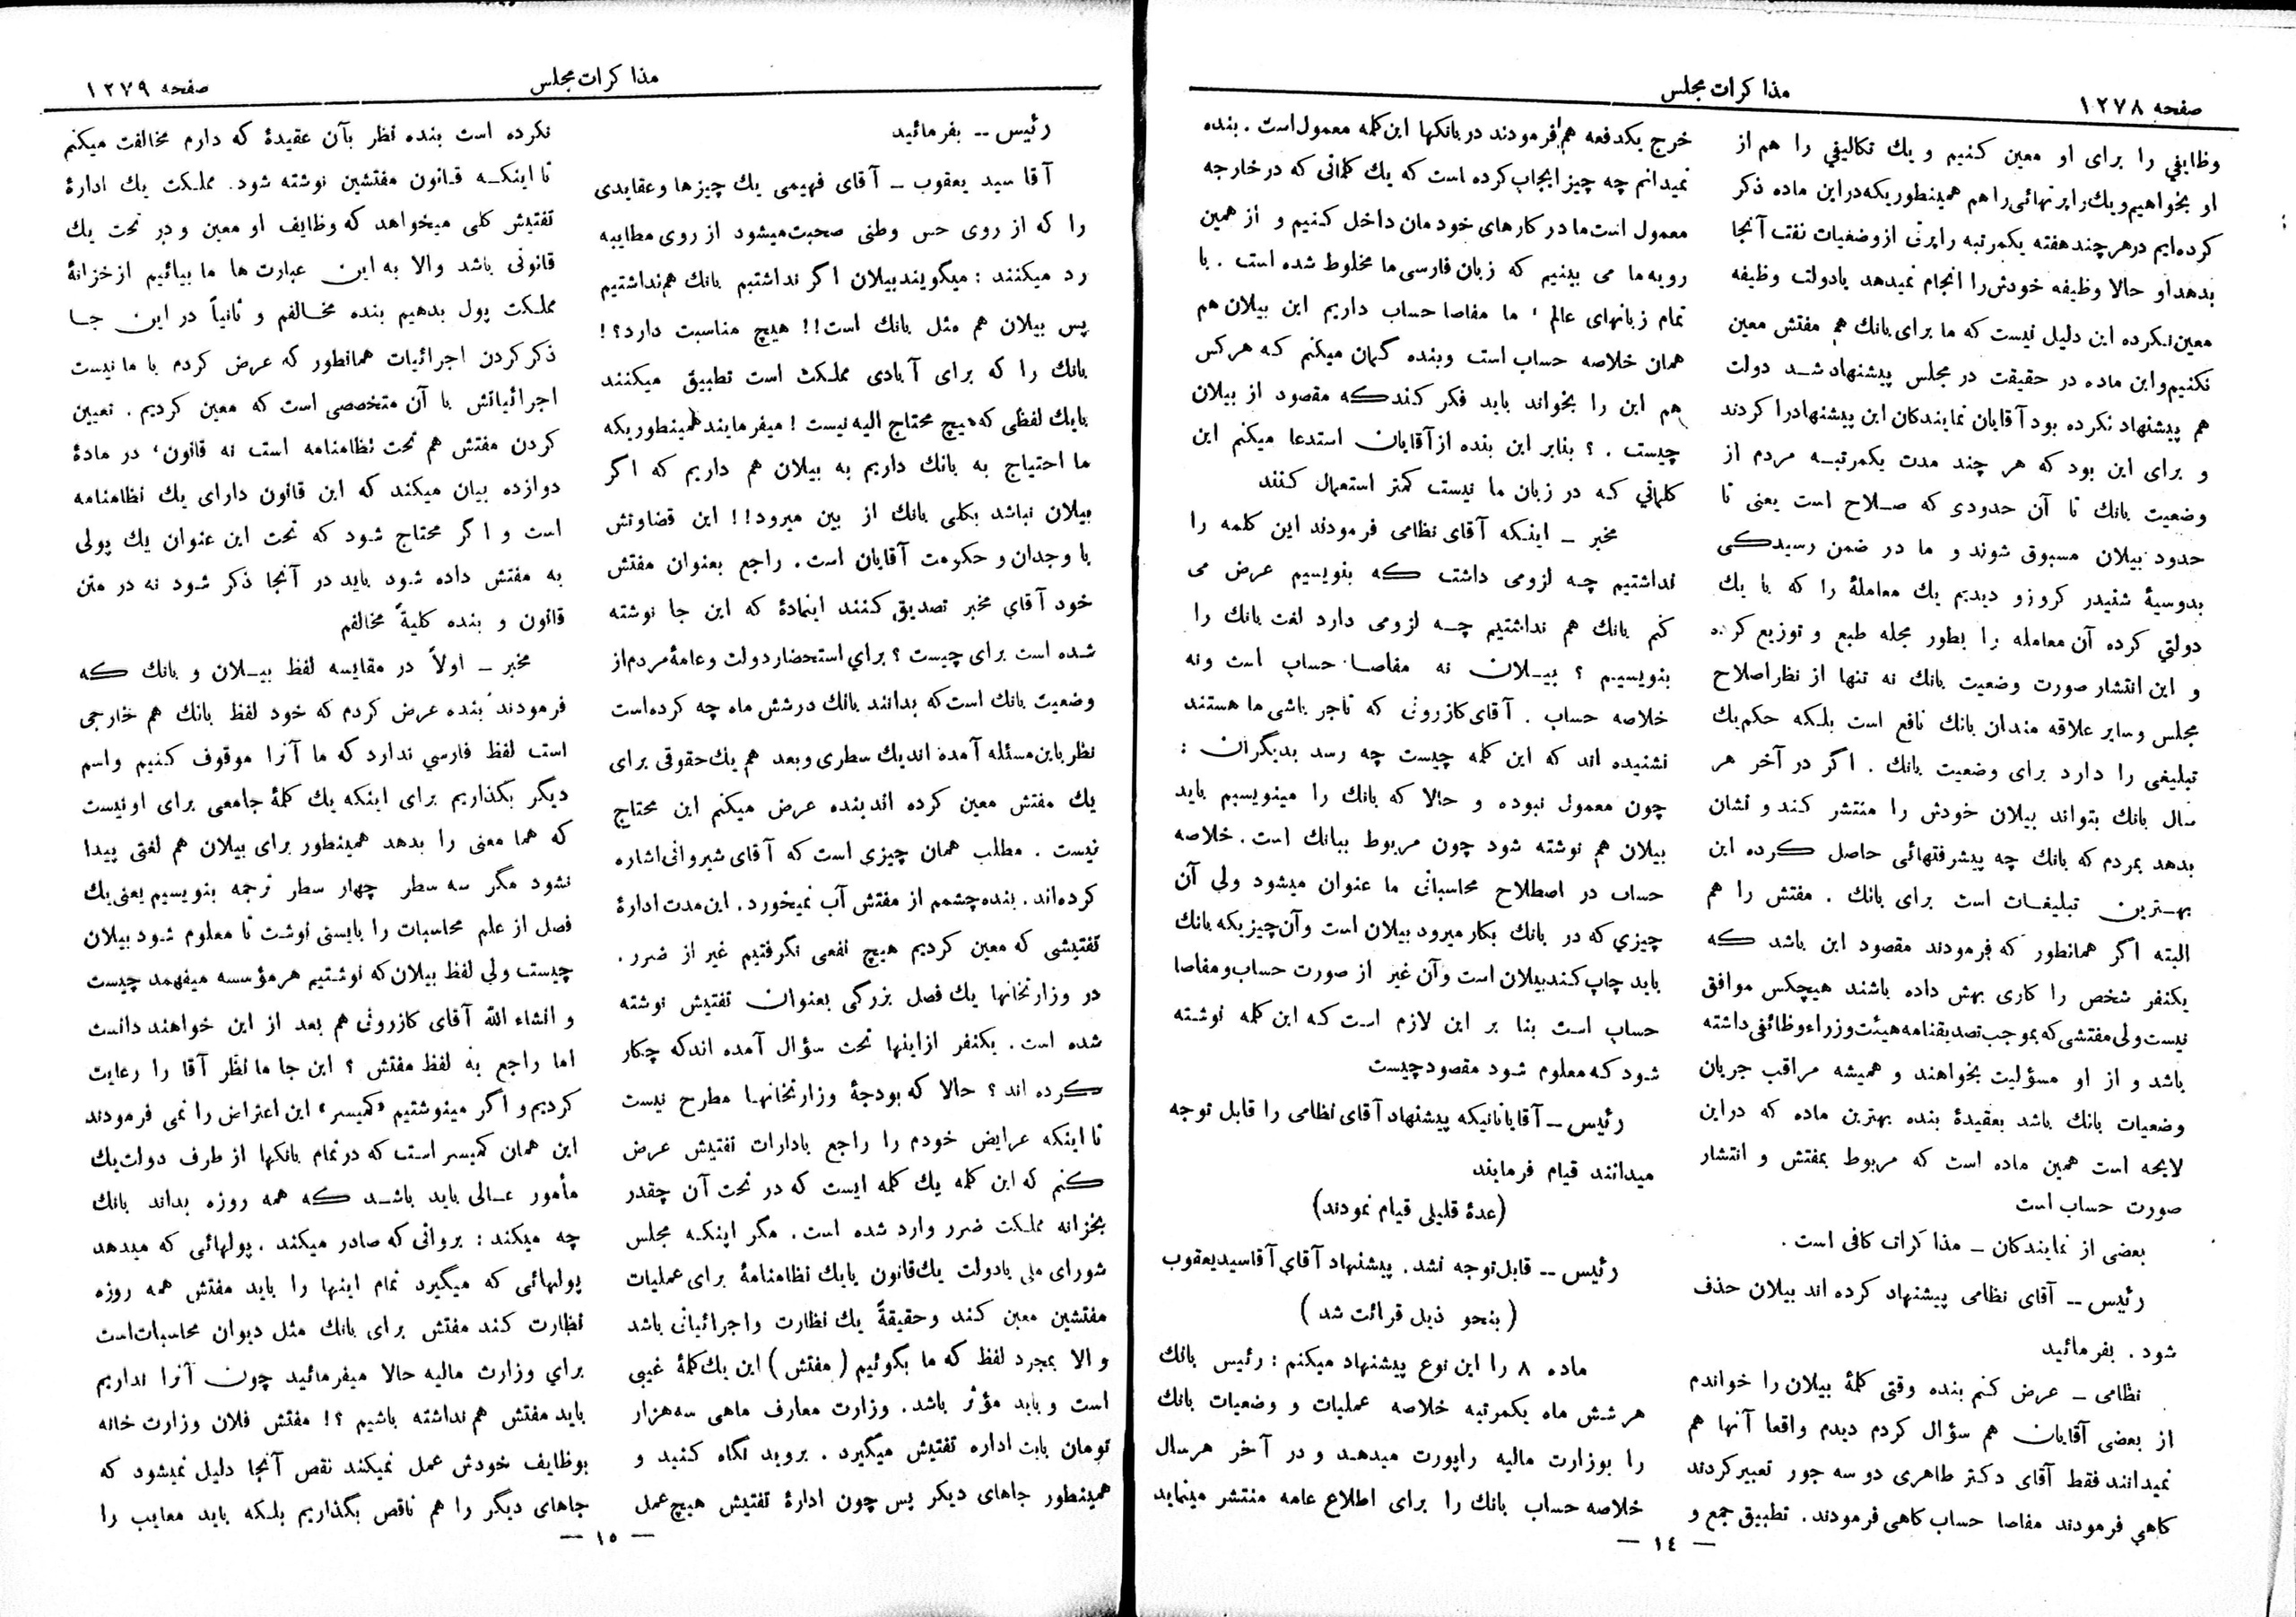 صفحه ۱۲۷۸
مذاکرات مجلس
وظایفي را برای او معین کنیم و یك تکالیفي را هم از
او بخواهیم ویك راپرتهائی را هم همینطوریکه دراین ماده ذکر
کرده‌ایم درهر چند هفته یکمرتبه راپرتی از وضعیات نفت آنجا
بدهد او حالا وظیفه خودش را انجام نمیدهد یادولت وظیفه
معین نکرده این دلیل نیست که ما برای بانك هم مفتش معین
نکنیم واین ماده در حقیقت در مجلس پیشنهاد شد دولت
هم پیشنهاد نکرده بود آقایان نمایندگان این پیشنهاد را کردند
و برای این بود که هر چند مدت یکمرتبه مردم از
وضعیت بانك تا آن حدودی که صلاح است یعنی تا
حدود بیلان مسبوق شوند و ما در ضمن رسیدگی
بدوسیۀ شنیدر کروزو دیدیم یك معاملۀ را که با یك
دولتي کرده آن معامله را بطور مجله طبع و توزیع کرده
و این انتشار صورت وضعیت بانك نه تنها از نظر اصلاح
مجلس و سایر علاقه مندان بانك نافع است بلکه حکم یك
تبلیغی را دارد برای وضعیت بانك . اگر در آخر هر
سال بانك بتواند بیلان خودش را منتشر کند و نشان
بدهد بمردم که بانك چه پیشرفتهائی حاصل کرده این
بهترین تبلیغات است برای بانك . مفتش را هم
البته اگر همانطور که فرمودند مقصود این باشد که
یکنفر شخص را کاری بهش داده باشند هیچکس موافق
نیست ولی مفتشی که بموجب تصدیقنامه هیئت وزراء وظائفی داشته
باشد و از او مسؤلیت بخواهند و همیشه مراقب جریان
وضعیات بانك باشد بعقیدۀ بنده بهترین ماده که دراین
لایحه است همین ماده است که مربوط بمفتش و انتشار
صورت حساب است
بعضی از نمایندگان ـ مذاکرات کافی است .
رئیس ـــ آقای نظامی پیشنهاد کرده اند بیلان حذف
شود . بفرمائید
نظامی ـ عرض کنم بنده وقتی کلمۀ بیلان را خواندم
از بعضی آقایان هم سؤال کردم دیدم واقعا آنها هم
نمیدانند فقط آقای دکتر طاهری دو سه جور تعبیر کردند
گاهي فرمودند مفاصا حساب گاهی فرمودند . تطبیق جمع و
خرج یکدفعه هم فرمودند در بانکها این کلمه معمول است . بنده
نمیدانم چه چیز ایجاب کرده است که یك کلماتی که در خارجه
معمول است ما در کارهای خودمان داخل کنیم و از همین
رویه ما می بینیم که زبان فارسی ما مخلوط شده است . با
تمام زبانهای عالم ، ما مفاصا حساب داریم این بیلان هم
همان خلاصه حساب است وبنده گمان میکنم که هرکس
هم این را بخواند باید فکر کند که مقصود از بیلان
چیست . ؟ بنابر این بنده از آقایان استدعا میکنم این
کلماتي که در زبان ما نیست کمتر استعمال کنند
مخبر ـ اینکه آقای نظامی فرمودند این کلمه را
نداشتیم چه لزومی داشت که بنویسیم عرض می
کنم بانك هم نداشتیم چه لزومی دارد لغت بانك را
بنویسیم ؟ بیلان نه مفاصا حساب است ونه
خلاصه حساب . آقای کازرونی که تاجر باشی ما هستند
نشنیده اند که این کلمه چیست چه رسد بدیگران :
چون معمول نبوده و حالا که بانك را مینویسیم باید
بیلان هم نوشته شود چون مربوط ببانك است . خلاصه
حساب در اصطلاح محاسباتی ما عنوان میشود ولي آن
چیزي که در بانك بکار میرود بیلان است وآن چیزیکه بانك
باید چاپ کند بیلان است وآن غیر از صورت حساب و مفاصا
حساب است بنا بر این لازم است که این کلمه نوشته
شود که معلوم شود مقصود چیست
رئیس ـــ آقایانیکه پیشنهاد آقای نظامی را قابل توجه
میدانند قیام فرمایند
(عدۀ قلیلی قیام نمودند)
رئیس ـــ قابل توجه نشد . پیشنهاد آقای آقاسید یعقوب
( بنحو ذیل قرائت شد )
ماده ۸ را این نوع پیشنهاد میکنم : رئیس بانك
هر شش ماه یکمرتبه خلاصه عملیات و وضعیات بانك
را بوزارت مالیه راپورت میدهد و در آخر هرسال
خلاصه حساب بانك را برای اطلاع عامه منتشر مینماید
— ١٤ —
مذاکرات مجلس
صفحه ۱۲۷۹
رئیس ـــ بفرمائید
آقا سید یعقوب ـ آقای فهیمی یك چیزها و عقایدی
را که از روی حس وطنی صحبت میشود از روی مطایبه
رد میکنند : میگویند بیلان اگر نداشتیم بانك هم نداشتیم
پس بیلان هم مثل بانك است !! هیچ مناسبت دارد ؟ !
بانك را که برای آبادی مملکت است تطبیق میکنند
بایك لفظی که هیچ محتاج الیه نیست ! میفرمایند همینطوریکه
ما احتیاج به بانك داریم به بیلان هم داریم که اگر
بیلان نباشد بکلی بانك از بین میرود !! این قضاوتش
با وجدان و حکومت آقایان است . راجع بعنوان مفتش
خود آقاي مخبر تصدیق کنند اینمادۀ که این جا نوشته
شده است برای چیست ؟ براي استحضار دولت و عامۀ مردم از
وضعیت بانك است که بدانند بانك درشش ماه چه کرده است
نظر باین مسئله آمده اند یك سطری وبعد هم یك حقوقی برای
یك مفتش معین کرده اند بنده عرض میکنم این محتاج
نیست . مطلب همان چیزي است که آقای شیروانی اشاره
کرده‌اند . بنده چشمم از مفتش آب نمیخورد . این مدت ادارۀ
تفتیشی که معین کردیم هیچ نفعی نگرفتیم غیر از ضرر .
در وزارتخانها یك فصل بزرگی بعنوان تفتیش نوشته
شده است . یکنفر از اینها تحت سؤال آمده اند که چکار
کرده اند ؟ حالا که بودجۀ وزارتخانها مطرح نیست
تا اینکه عرایض خودم را راجع بادارات تفتیش عرض
کنم که این کلمه یك کلمه ایست که در تحت آن چقدر
بخزانه مملکت ضرر وارد شده است . مگر اینکه مجلس
شورای ملی یادولت یك قانون یایك نظامنامۀ برای عملیات
مفتشین معین کند و حقیقةً یك نظارت و اجرائیاتی باشد
و الا بمجرد لفظ که ما بگوئیم ( مفتش ) این یك کلمۀ غیبی
است و باید مؤثر باشد . وزارت معارف ماهی سه هزار
تومان بابت اداره تفتیش میگیرد . بروید نگاه کنید و
همینطور جاهای دیگر پس چون ادارۀ تفتیش هیچ عمل
نکرده است بنده نظر بآن عقیدۀ که دارم مخالفت میکنم
تا اینکه قانون مفتشین نوشته شود . مملکت یك ادارۀ
تفتیش کلی میخواهد که وظایف او معین و در تحت یك
قانونی باشد والا به این عبارت ها ما بیائیم از خزانۀ
مملکت پول بدهیم بنده مخالفم و ثانیاً در این جا
ذکر کردن اجرائیات همانطور که عرض کردم با ما نیست
اجرائیاتش با آن متخصصی است که معین کردیم . تعیین
کردن مفتش هم تحت نظامنامه است نه قانون ، در مادۀ
دوازده بیان میکند که این قانون دارای یك نظامنامه
است و اگر محتاج شود که تحت این عنوان یك پولی
به مفتش داده شود باید در آنجا ذکر شود نه در متن
قانون و بنده کلیةً مخالفم
مخبر ـ اولاً در مقایسه لفظ بیلان و بانك که
فرمودند بنده عرض کردم که خود لفظ بانك هم خارجی
است لفظ فارسي ندارد که ما آنرا موقوف کنیم واسم
دیگر بگذاریم برای اینکه یك کلمۀ جامعی برای او نیست
که هما معنی را بدهد همینطور برای بیلان هم لغتی پیدا
نشود مگر سه سطر چهار سطر ترجمه بنویسیم یعنی یك
فصل از علم محاسبات را بایستی نوشت تا معلوم شود بیلان
چیست ولي لفظ بیلان که نوشتیم هر مؤسسه میفهمد چیست
و انشاء الله آقای کازرونی هم بعد از این خواهند دانست
اما راجع به لفظ مفتش ؟ این جا ما نظر آقا را رعایت
کردیم و اگر مینوشتیم «کمیسر» این اعتراض را نمی فرمودند
این همان کمیسر است که درتمام بانکها از طرف دولت یك
مأمور عالی باید باشد که همه روزه بداند بانك
چه میکند : برواتی که صادر میکند . پولهائی که میدهد
پولهائی که میگیرد تمام اینها را باید مفتش همه روزه
نظارت کند مفتش برای بانك مثل دیوان محاسبات است
براي وزارت مالیه حالا میفرمائید چون آنرا نداریم
باید مفتش هم نداشته باشیم ؟! مفتش فلان وزارت خانه
بوظایف خودش عمل نمیکند نقص آنجا دلیل نمیشود که
جاهای دیگر را هم ناقص بگذاریم بلکه باید معایب را
— ١٥ —